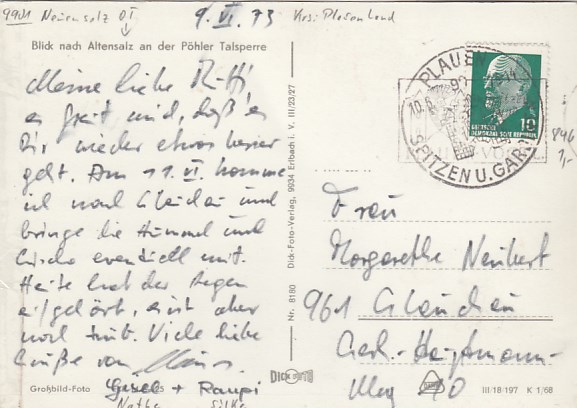 9901 Neuensalz OT
9. VI. 73
Krs: Plauen Land
Blick nach Altensalz an der Pöhler Talsperre
Meine liebe Mutti,
es freut mich, daß es
Dir wieder etwas besser
geht. Am 11. VI. komme
ich nach Glauchau und
bringe die Himmel und
eventuell mit.
Heute hat der Regen
aufgehört, es ist aber
noch trüb. Viele liebe
Grüße von
Gusel + Raupi
Großbild-Foto
Silke
Nr. 8180 Dick-Foto-Verlag, 9934 Erlbach i. V. III/23/27
DICK FOTO
PLAUEN
SPITZEN U. GARD
10
DEUTSCHE
DEMOKRATISCHE REPUBLIK
1,-
Frau
Margarethe Neubert
961 Glauchau
Carl-Hauptmann-
Weg 10
III/18/197 K 1/68